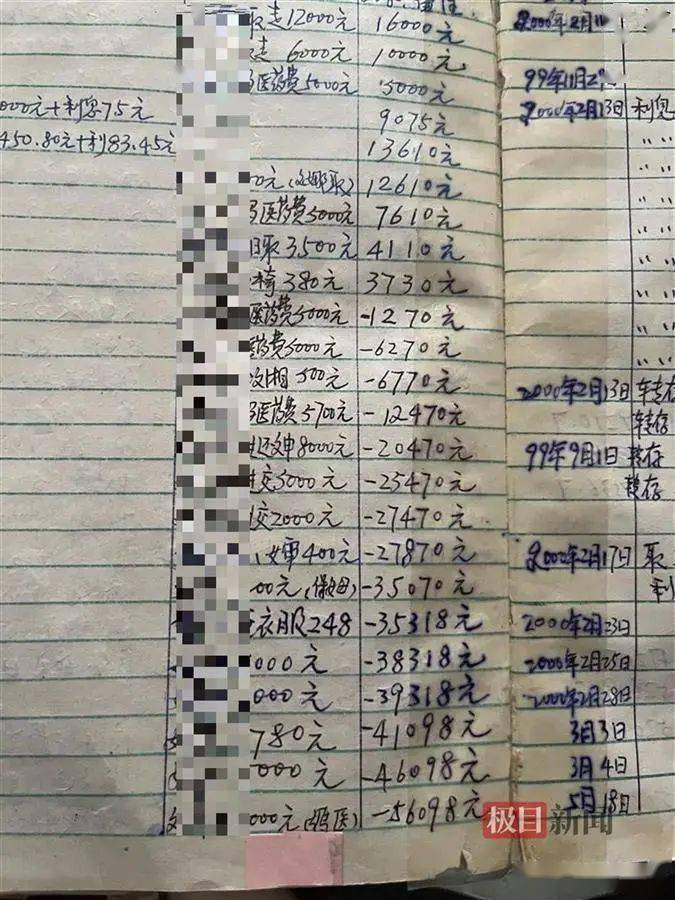 走12000元 16000元 2000年2月11
走 6000元 10000元
医药费5000元 5000元 99年11月2
000元+利息75元 9075元 2000年2月13日 利息
450.80元+利83.45元 13610元 〃 〃
00元(取) 12610元 〃 〃
医药费5000元 7610元 〃 〃
取 3,500元 4110元 〃 〃
椅 380元 3730元 〃 〃
医药费5000元 -1270元 〃 〃
医药费5000元 -6270元 〃 〃
500元 -6770元 2000年2月13日 转存
医药费5700元 -12470元 转存
8000元 -20470元 99年9月1日 转存
交5000元 -25470元 转存
交2000元 -27470元
400元 -27870元 2000年2月17日 取
00元(保姆) -35070元 利
衣服248 -35318元 2000年2月23日
000元 -38318元 2000年2月25日
000元 -39318元 2000年2月28日
780元 -41098元 3月3日
000元 -46098元 3月4日
000元 -56098元 5月18日
极目新闻